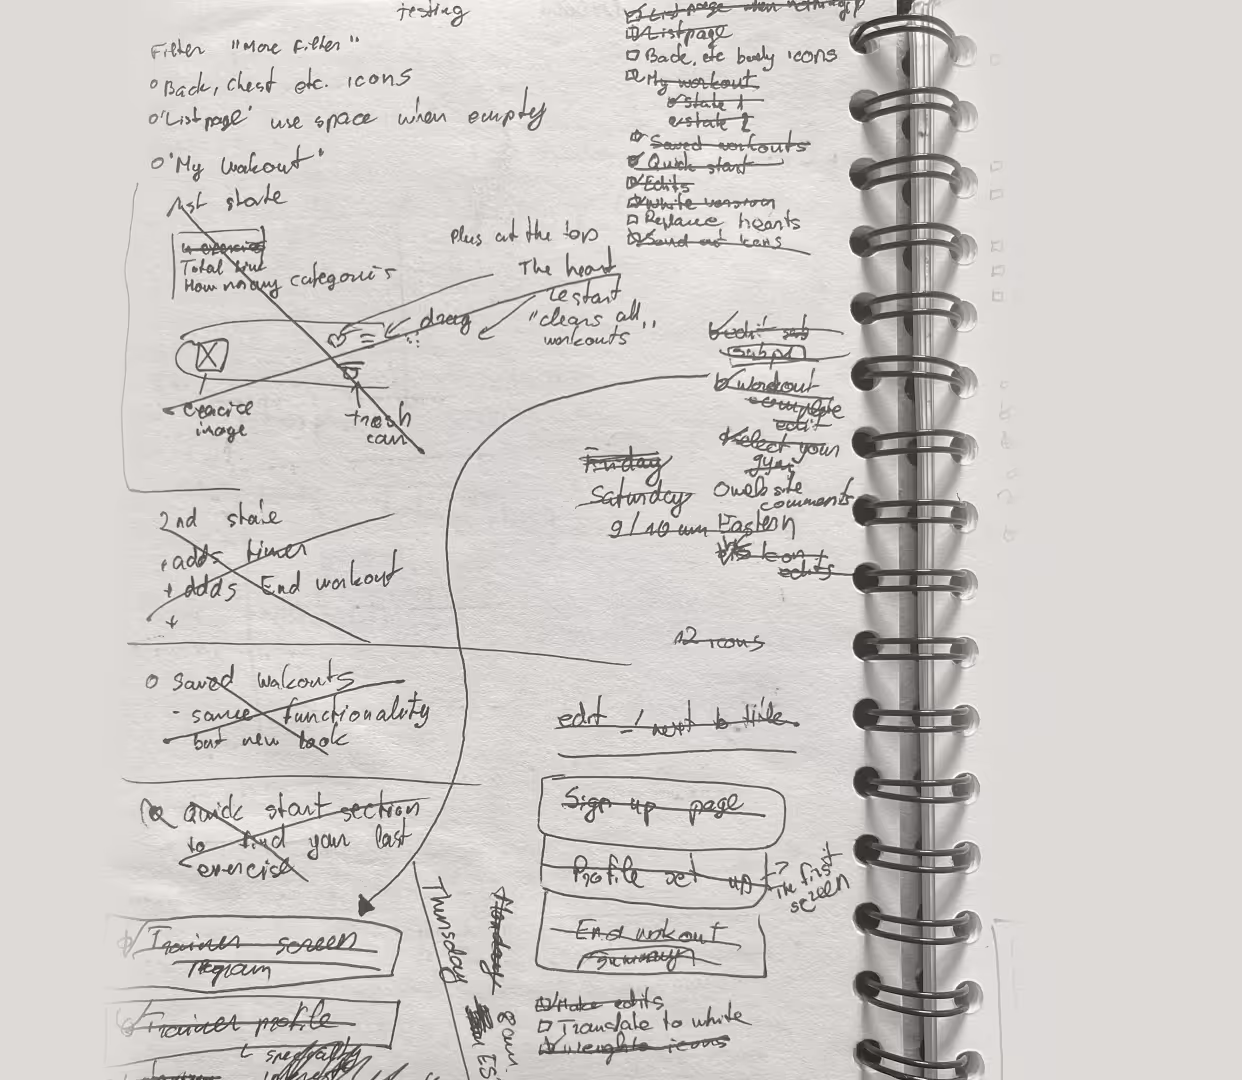 testing
Filter "More Filter"
Back, chest etc. icons
"Listpage" use space when empty
"My workout"
1st state
Total time
How many categories
drag
exercise
image
trash
can
Plus at the top
The heart
restart
"clears all"
workouts
2nd state
+ adds timer
+ adds End workout
+
Saved workouts
- same functionality
but new look
Quick start section
to find your last
exercise
Trainer screen
Program
Trainer profile
specialty
List page when
Listpage
Back, etc body icons
My workout
state 1
state 2
Saved workouts
Quick start
Edits
White version
Replace hearts
Send out icons
edit sub
workout
complete
edit
select your
gym
Website
comments
icon
edits
Friday
Saturday
9/10 am Eastern
12 icons
edit - next to title
Sign up page
Profile set up
The first
screen
End workout
Summary
Thursday
Monday
8am
EST
Make edits
Translate to white
Weights icons